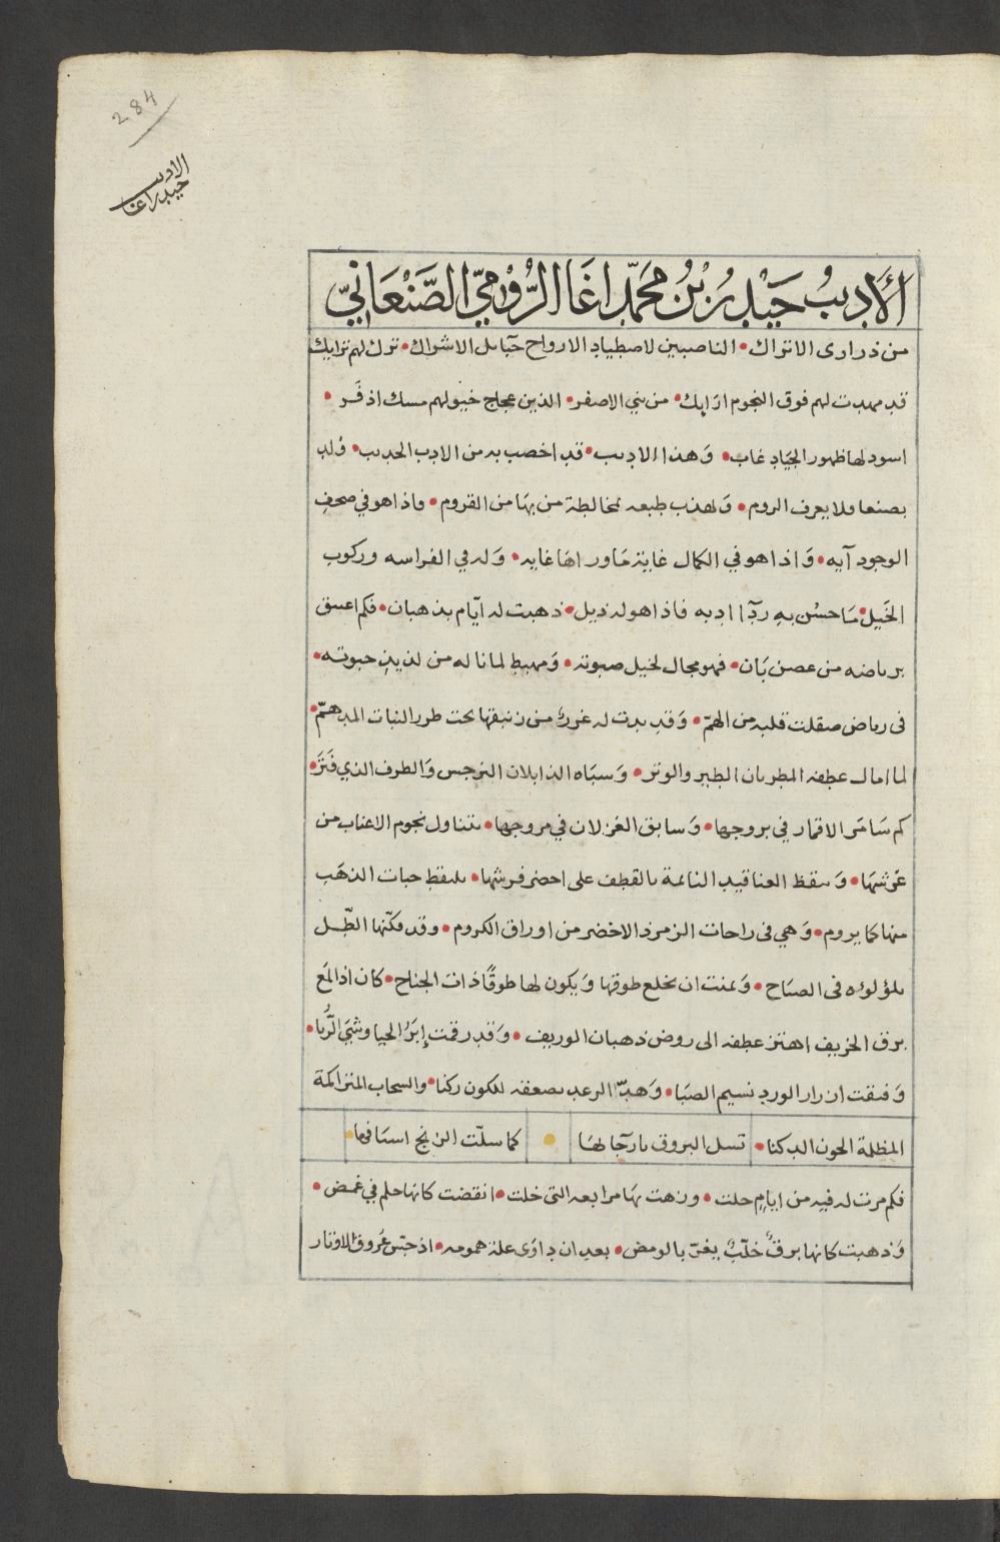 284
الاديب
حيدر اغا
الأَدِيبُ حَيْدَرُ بْنُ مُحَمَّد اغَا الرُّوْمِيّ الصَّنْعَانِيّ
من ذرارى الاتراك • الناصبين لاصطياد الارواح حبايل الاشراك • ترك لهم ترايك
قد مهدت لهم فوق النجوم ارَايك • من بني الاصفر • الذين عجاج خيولهم مسك اذفَر •
اسود لها ظهور الجيَاد غاب • وَهذا الاديب • قد اخصب به من الادب الجديب • وُلد
بصنعا ولا يعرف الروم • وَتهذب طبعه لمخالطة من بهَا من القروم • واذا هو في صحف
الوجود آيه • وَاذا هو في الكمال غاية مَا وراهَا غايه • وَله في الفراسه وركوب
الخَيل • مَا حسُن بهِ ردَآ ادبه فاذا هو له ذيل • ذهبت له ايّام بذهبان • فكم اعتنق
برياضه من غصن بَان • فهو مجال لخيل صبوته • وَمهبط لما ناله من لذيذ حبوته •
فى رياض صقلت قلبه من الهمّ • وَقد بدت له غرر من زنبقها تحت طرر النبات المدهمّ •
لما امال عطفه المطربان الطير والوتر • وَسبَاه الذابلان النرجس وَالطرف الذي فَتَرَ •
كم سَامَر الاقمار في بروجها • وَسابق الغزلان في مروجها • يتناول نجوم الاعناب من
عَرشهَا • وَيقظ العناقيد النائمة بالقطف على اخضر فرشها • يلتقط حبات الذهَب
منها كما يروم • وَهي فى راحات الزمرذ الاخضر من اوراق الكروم • وقد مكّنها الطّل
بلؤلؤه فى الصبَاح • وَتمنت ان تخلع طوقها وَيكون لها طوقًا ذات الجناح • كان اذا لمَع
برق الخريف اهتز عطفه الى روض ذهبان الوريف • وَقد رقمت إبَرُ الحيا وشيَ الرُّبا •
وَفتقت ازرار الورد نسيم الصبَا • وَهدّ الرعد بصعقه للكون ركنا • والسحاب المتراكمة
المظلة الجون الدكنا • تسل البروق بارجآئهَا • كما سلّت الزنج اسيَافها •
فكم مرت له فيه من ايامٍ حلت • وزهت بهَا مرابعه التى خلت • انقضت كانها حلم في غمض •
وَذهبت كانها برقٌ خلّبٌ يغرّ بالومض • بعد ان داوَى علة همومه • اذ جسّ عُروق الاوتار